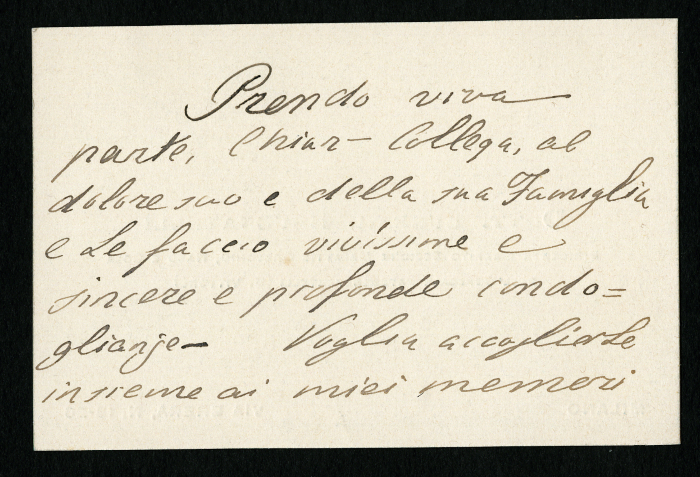 Prendo viva
parte, Chiar- Collega, al
dolore suo e della sua Famiglia
e Le faccio vivissime e
sincere e profonde condo=
glianze- Voglia accoglierle
insieme ai miei memori